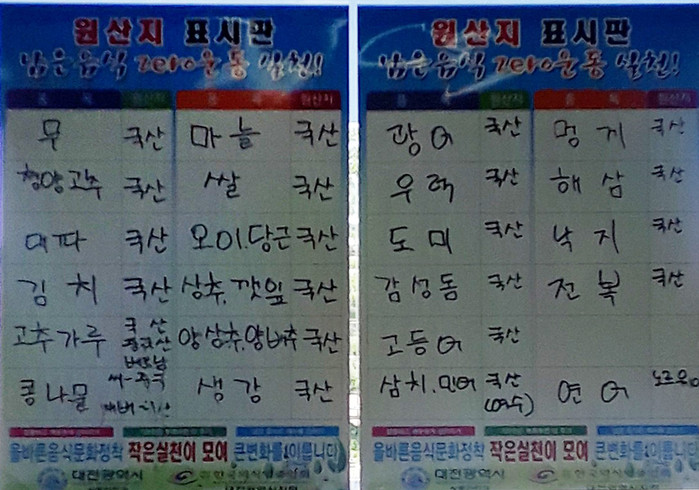 원산지 표시판
남은음식 zero운동 실천!
품 목 원산지 품 목 원산지
무 국산 마늘 국산
청양고추 국산 쌀 국산
대파 국산 오이.당근 국산
김치 국산 상추.깻잎 국산
고추가루 국산 중국산 베트남 양상추.양배추 국산
콩나물 생강 국산
올바른음식문화정착 작은실천이 모여 큰변화를 이룹니다
대전광역시
원산지 표시판
남은음식 zero운동 실천!
품 목 원산지 품 목 원산지
광어 국산 멍게 국산
우럭 국산 해삼 국산
도미 국산 낙지 국산
감성돔 국산 전복 국산
고등어 국산
삼치.민어 국산 (여수) 연어 노르웨이
올바른음식문화정착 작은실천이 모여 큰변화를 이룹니다
대전광역시